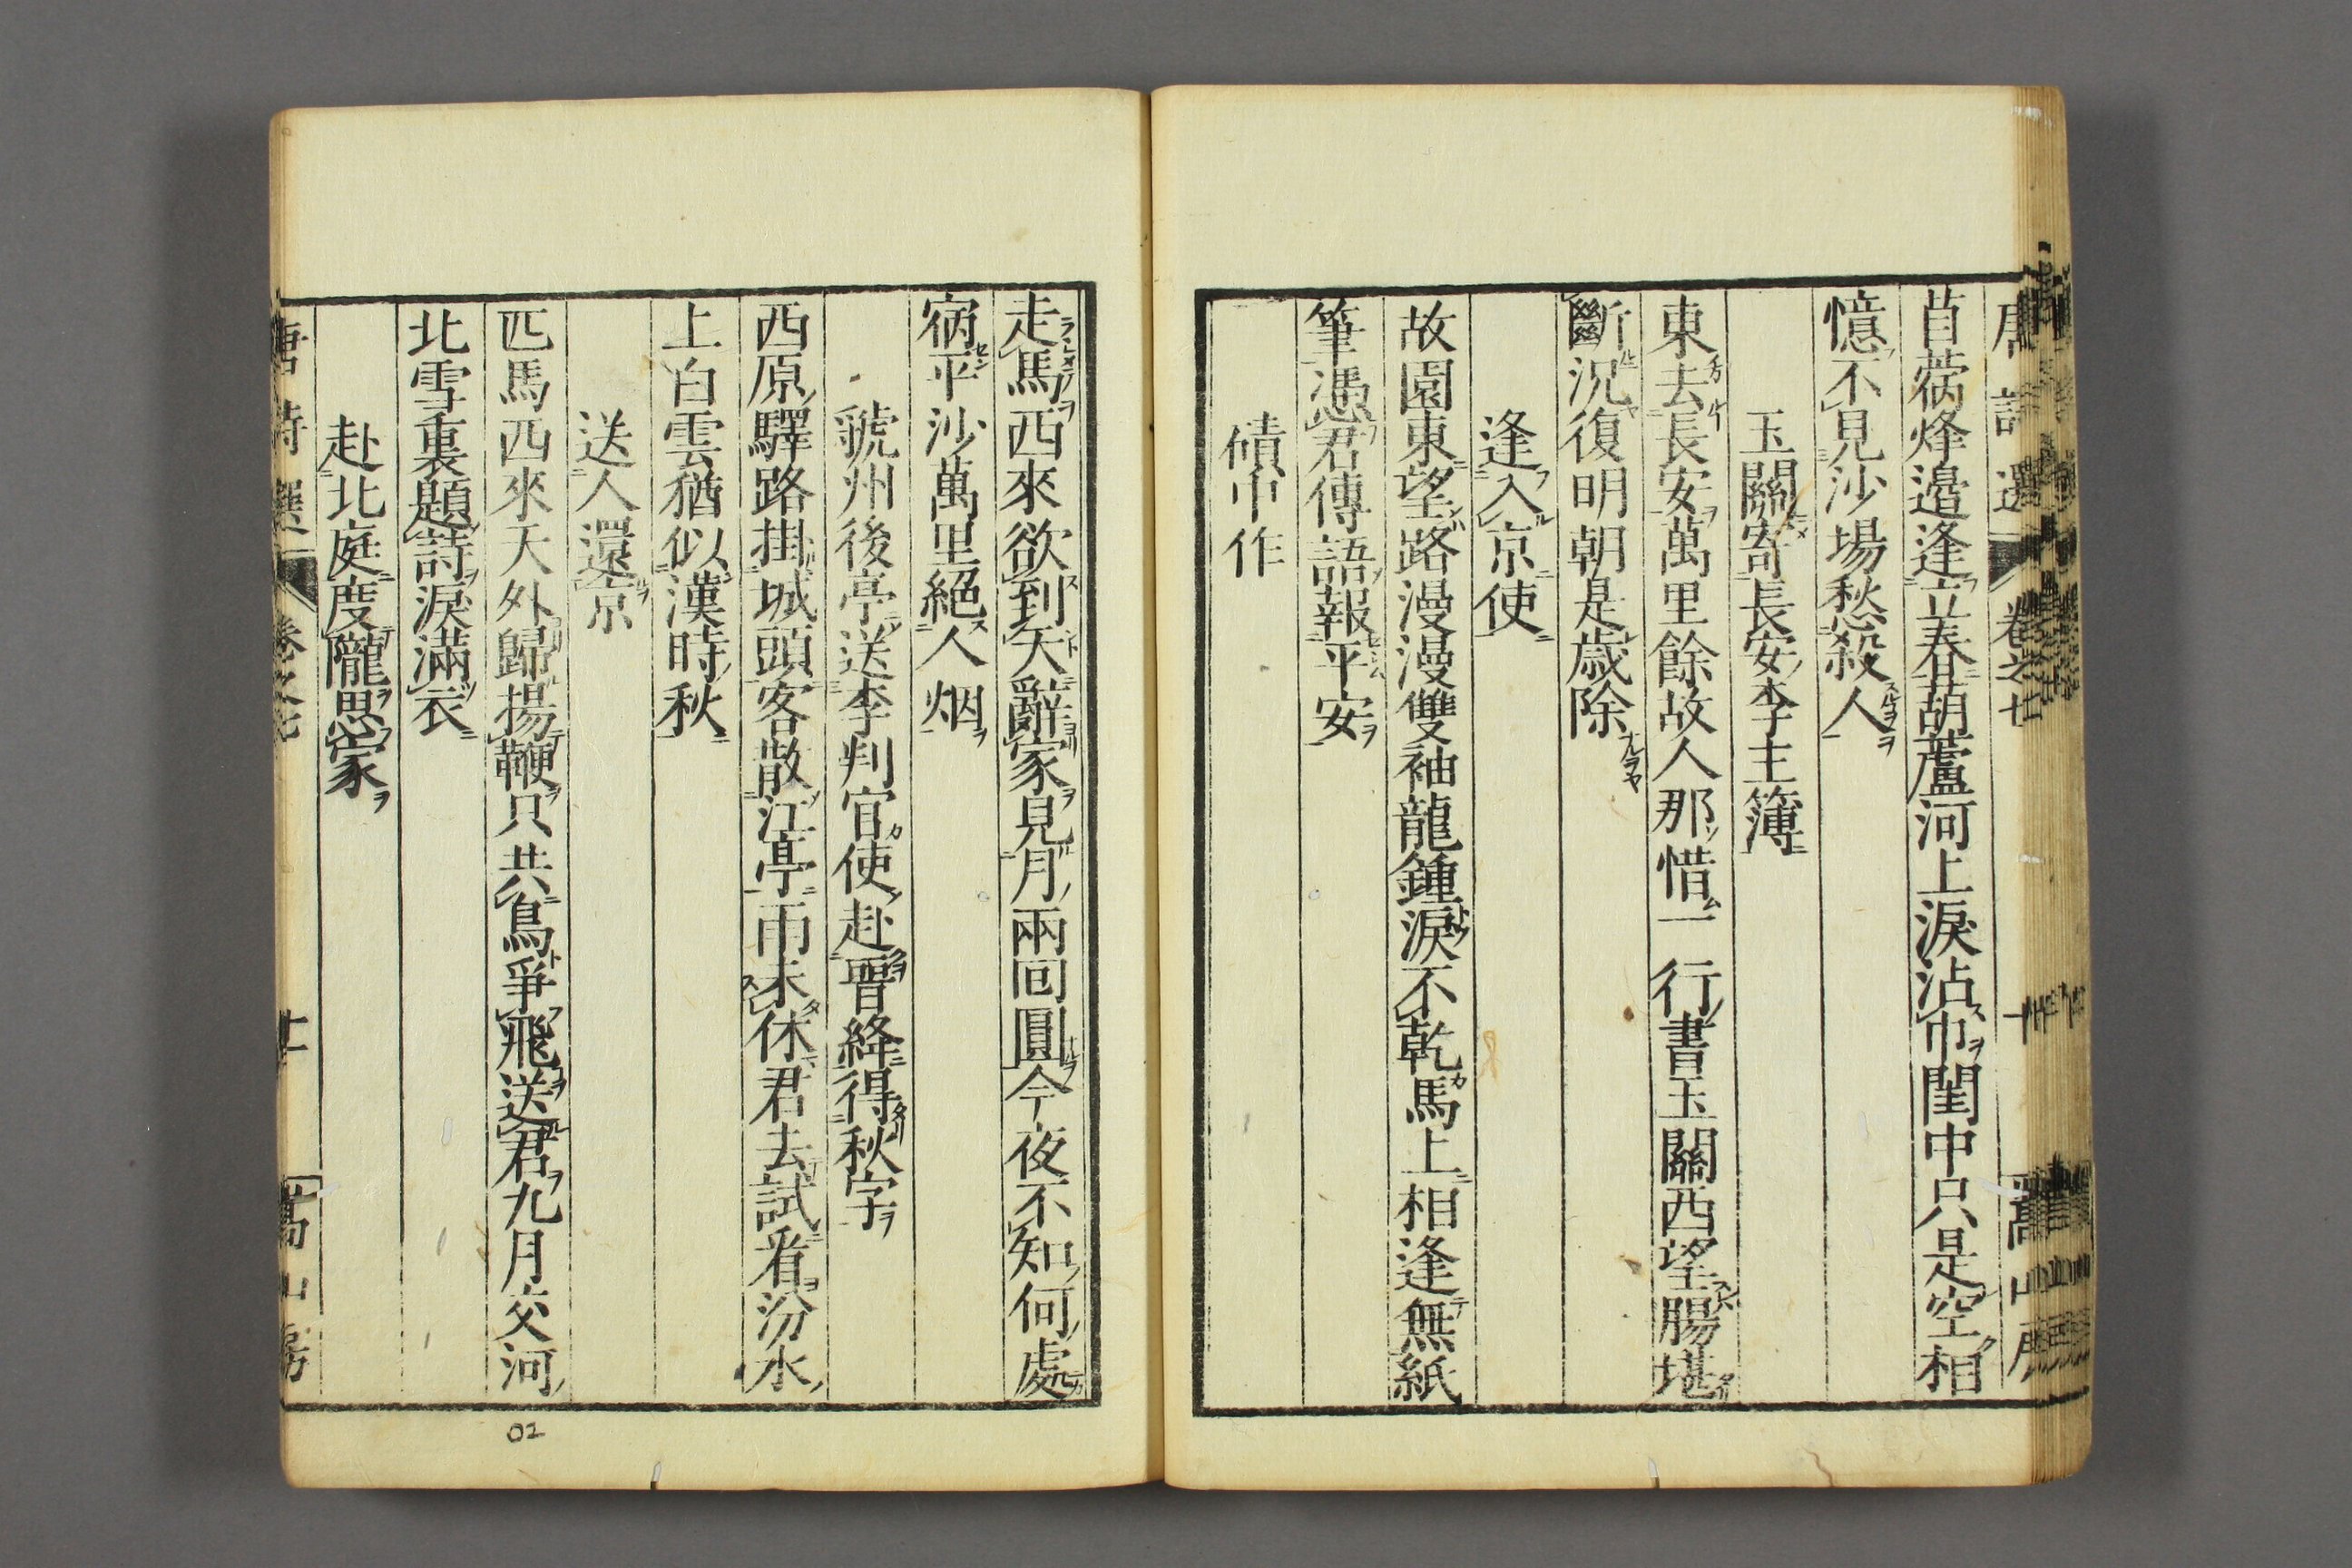 苜蓿烽邉逢立春葫蘆河上淚沾巾閨中只是空相
憶不見沙場愁殺人
玉關寄長安李主簿
東去長安萬里餘故人那惜一行書玉關西望腸堪
斷況復明朝是歲除
逢入京使
故園東望路漫漫雙袖龍鍾淚不乾馬上相逢無紙
筆憑君傳語報平安
磧中作
走馬西來欲到天辭家見月兩回圓今夜不知何處
宿平沙萬里絕人烟
虢州後亭送李判官使赴晉絳得秋字
西原驛路掛城頭客散江亭雨未休君去試看汾水
上白雲猶似漢時秋
送人還京
匹馬西來天外歸揚鞭只共鳥爭飛送君九月交河
北雪裏題詩淚滿衣
赴北庭度隴思家
唐詩選 卷之七 十一 嵩山房
02